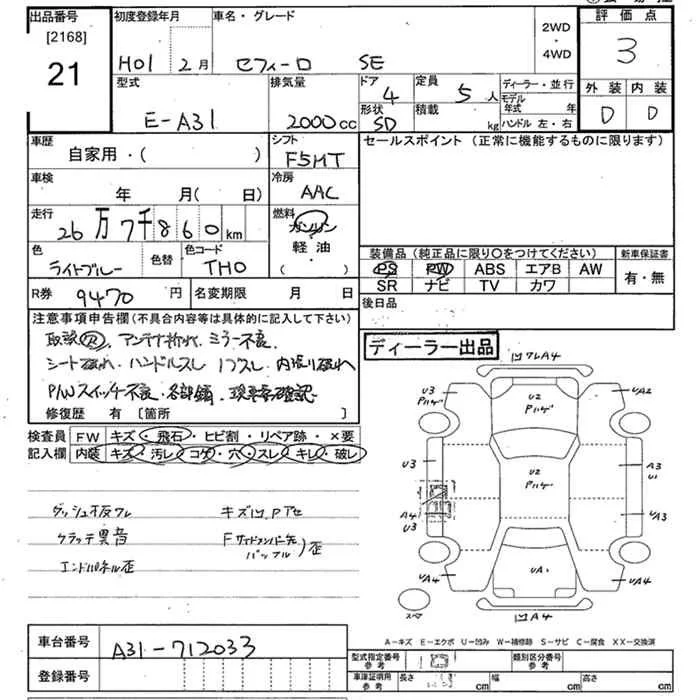 出品番号
[2168]
21
初度登録年月
H01 2月
車名・グレード
セフィーロ SE
2WD
・
4WD
評価点
3
外装 内装
D D
型式
E-A31
排気量
2000cc
ドア
4
定員
5人
ディーラー・並行
モデル年式 年
ハンドル 左・右
形状
SD
積載
kg
車歴
自家用・( )
シフト
F5MT
セールスポイント(正常に機能するものに限ります)
車検
年 月( 日)
冷房
AAC
走行
26万7千860km
燃料
ガソリン
軽油
( )
色
ライトブルー
色替
色コード
TH0
装備品(純正品に限り○をつけてください)
PS PW ABS エアB AW
SR ナビ TV カワ
新車保証書
有・無
R券 9470円
名変期限 月 日
後日品
注意事項申告欄(不具合内容等は具体的に記入して下さい)
取説R、アンテナ折れ、ミラー不良、
シート破れ、ハンドルスレ
P/Wスイッチ不良、各部錆、現車要確認
修復歴 有[箇所 ]
ディーラー出品
検査員 FW キズ・飛石・ヒビ割・リペア跡・×要
記入欄 内装 キズ・汚レ・コゲ・穴・スレ・キレ・破レ
ダッシュ板ワレ
クラッチ異音
エンドパネル歪
キズ凹Pアセ
Fサイドメンバー先
バッフル)歪
凹ワレA4
U3
Pハゲ
U2
Pハゲ
UA2
U3
U2
Pハゲ
A3
U1
A4
U3
U/A3
UA4
UA1
UA4
スペア
凹A4
A-キズ E-エクボ U-凹み W-補修跡 S-サビ C-腐食 XX-交換済
車台番号
A31-712033
登録番号
型式指定番号
参考
類別区分番号
参考
車庫証明用
参考
長さ cm 幅 cm 高さ cm